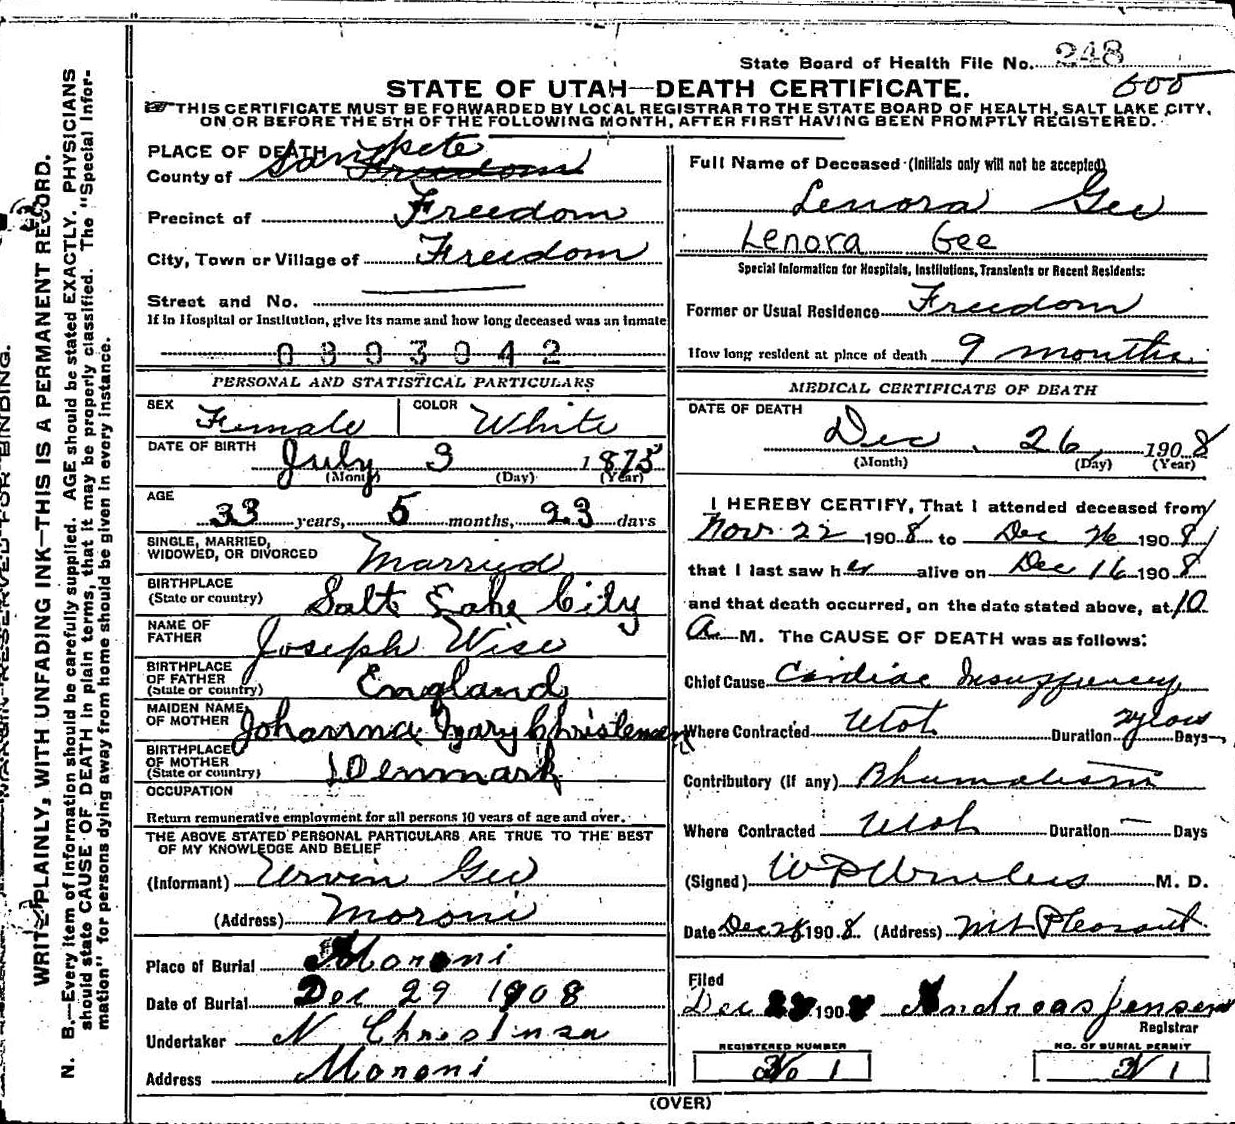 State Board of Health File No. 248
600
STATE OF UTAH—DEATH CERTIFICATE.
THIS CERTIFICATE MUST BE FORWARDED BY LOCAL REGISTRAR TO THE STATE BOARD OF HEALTH, SALT LAKE CITY,
ON OR BEFORE THE 5TH OF THE FOLLOWING MONTH, AFTER FIRST HAVING BEEN PROMPTLY REGISTERED.
PLACE OF DEATH
County of Sanpete Freedom
Precinct of Freedom
City, Town or Village of Freedom
Street and No.
If in Hospital or Institution, give its name and how long deceased was an inmate
0303042
PERSONAL AND STATISTICAL PARTICULARS
SEX Female COLOR White
DATE OF BIRTH July 3 1875
(Month) (Day) (Year)
AGE
33 years, 5 months, 23 days
SINGLE, MARRIED,
WIDOWED, OR DIVORCED Married
BIRTHPLACE
(State or country) Salt Lake City
NAME OF
FATHER Joseph Wise
BIRTHPLACE
OF FATHER
(State or country) England
MAIDEN NAME
OF MOTHER Johanna Mary Christensen
BIRTHPLACE
OF MOTHER
(State or country) Denmark
OCCUPATION
Return remunerative employment for all persons 10 years of age and over.
THE ABOVE STATED PERSONAL PARTICULARS ARE TRUE TO THE BEST
OF MY KNOWLEDGE AND BELIEF
(Informant) Ervin Gee
(Address) Moroni
Place of Burial Moroni
Date of Burial Dec 29 1908
Undertaker N Christensen
Address Moroni
Full Name of Deceased (Initials only will not be accepted)
Lenora Gee
Lenora Gee
Special Information for Hospitals, Institutions, Transients or Recent Residents:
Former or Usual Residence Freedom
How long resident at place of death 9 months
MEDICAL CERTIFICATE OF DEATH
DATE OF DEATH
Dec. 26, 1908
(Month) (Day) (Year)
I HEREBY CERTIFY, That I attended deceased from
Nov 22 1908 to Dec 26 1908
that I last saw her alive on Dec 16 1908
and that death occurred, on the date stated above, at 10
A. M. The CAUSE OF DEATH was as follows:
Chief Cause Cardiac Insufficiency
Where Contracted Utah Duration 2 years Days
Contributory (if any) Rhumatism
Where Contracted Utah Duration — Days
(Signed) M. D.
Date Dec 28 1908 (Address) Mt Pleasant
Filed
Dec 190 Andreas Jensen
Registrar
REGISTERED NUMBER
No 1
NO. OF BURIAL PERMIT
N 1
(OVER)
MARGIN RESERVED FOR BINDING.
WRITE PLAINLY, WITH UNFADING INK—THIS IS A PERMANENT RECORD.
N. B.—Every item of information should be carefully supplied. AGE should be stated EXACTLY. PHYSICIANS
should state CAUSE OF DEATH in plain terms, that it may be properly classified. The "Special Infor-
mation" for persons dying away from home should be given in every instance.